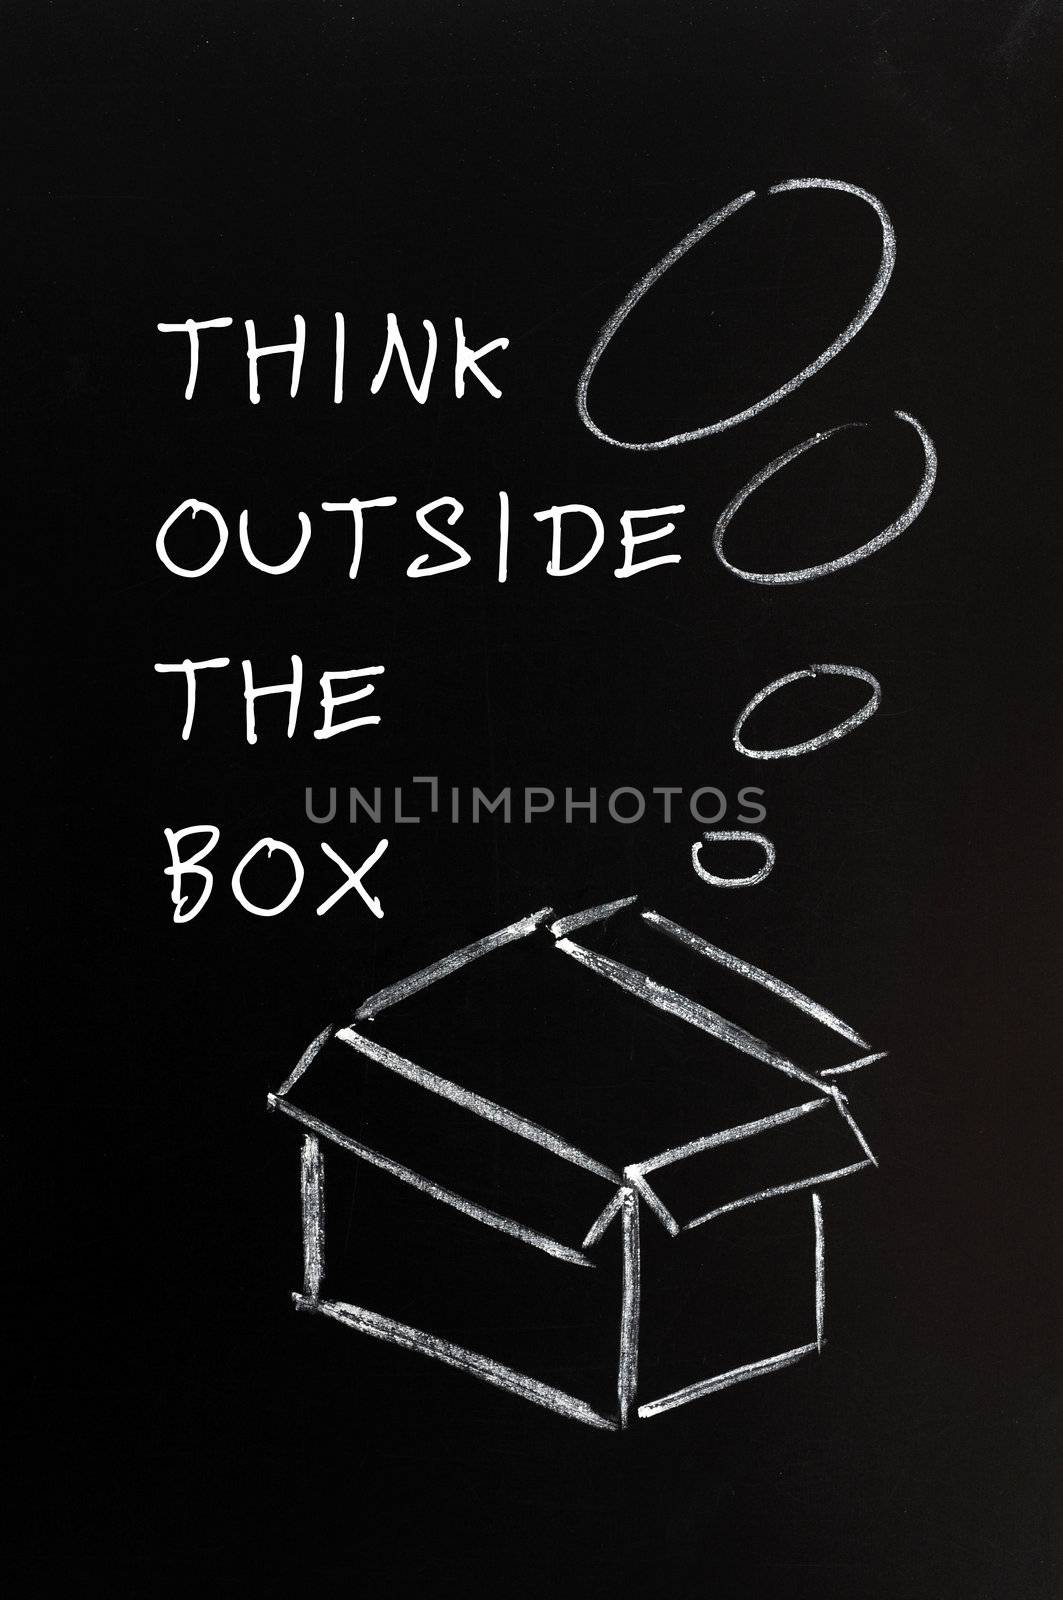 THINK
OUTSIDE
THE
UNLIMPHOTOS
BOX